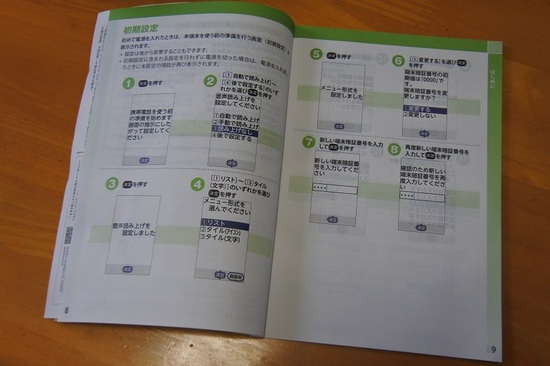 初期設定
初めて電源を入れたときは、本端末を使う初の準備を行う画面(初期設定)が
表示されます。
• 設定は後から変更することもできます。
• 初期設定に含まれる設定を行わずに電源を切った場合は、電源を入れ
たときに未設定の項目が再び表示されます。
1 決定を押す
携帯電話を使う初
の準備を始めます
画面の指示にした
がって設定してく
ださい
決定
2 [1自動で読み上げ]~
[4後で設定する]のいず
れかを選び決定を押す
音声読み上げを
設定してください
1自動で読み上げ
2手動で読み上げ
3読み上げなし
4後で設定する
決定
3 決定を押す
音声読み上げを
設定しました
決定
4 [1リスト]~[3タイル
(文字)]のいずれかを選び
決定を押す
メニュー形式を
選んでください
1リスト
2タイル(アイコン)
3タイル(文字)
決定
8
5 決定を押す
メニュー形式を
設定しました
決定
6 [1変更する]を選び決定
を押す
端末暗証番号の初
期値は「0000」です。
端末暗証番号を変
更しますか?
1変更する
2変更しない
決定
7 新しい端末暗証番号を入力
して決定を押す
新しい端末暗証番
号を入力してくだ
さい
****
決定
8 再度新しい端末暗証番号を
入力して決定を押す
確認のため新しい
端末暗証番号を再
度入力してくださ
い
****
決定
9